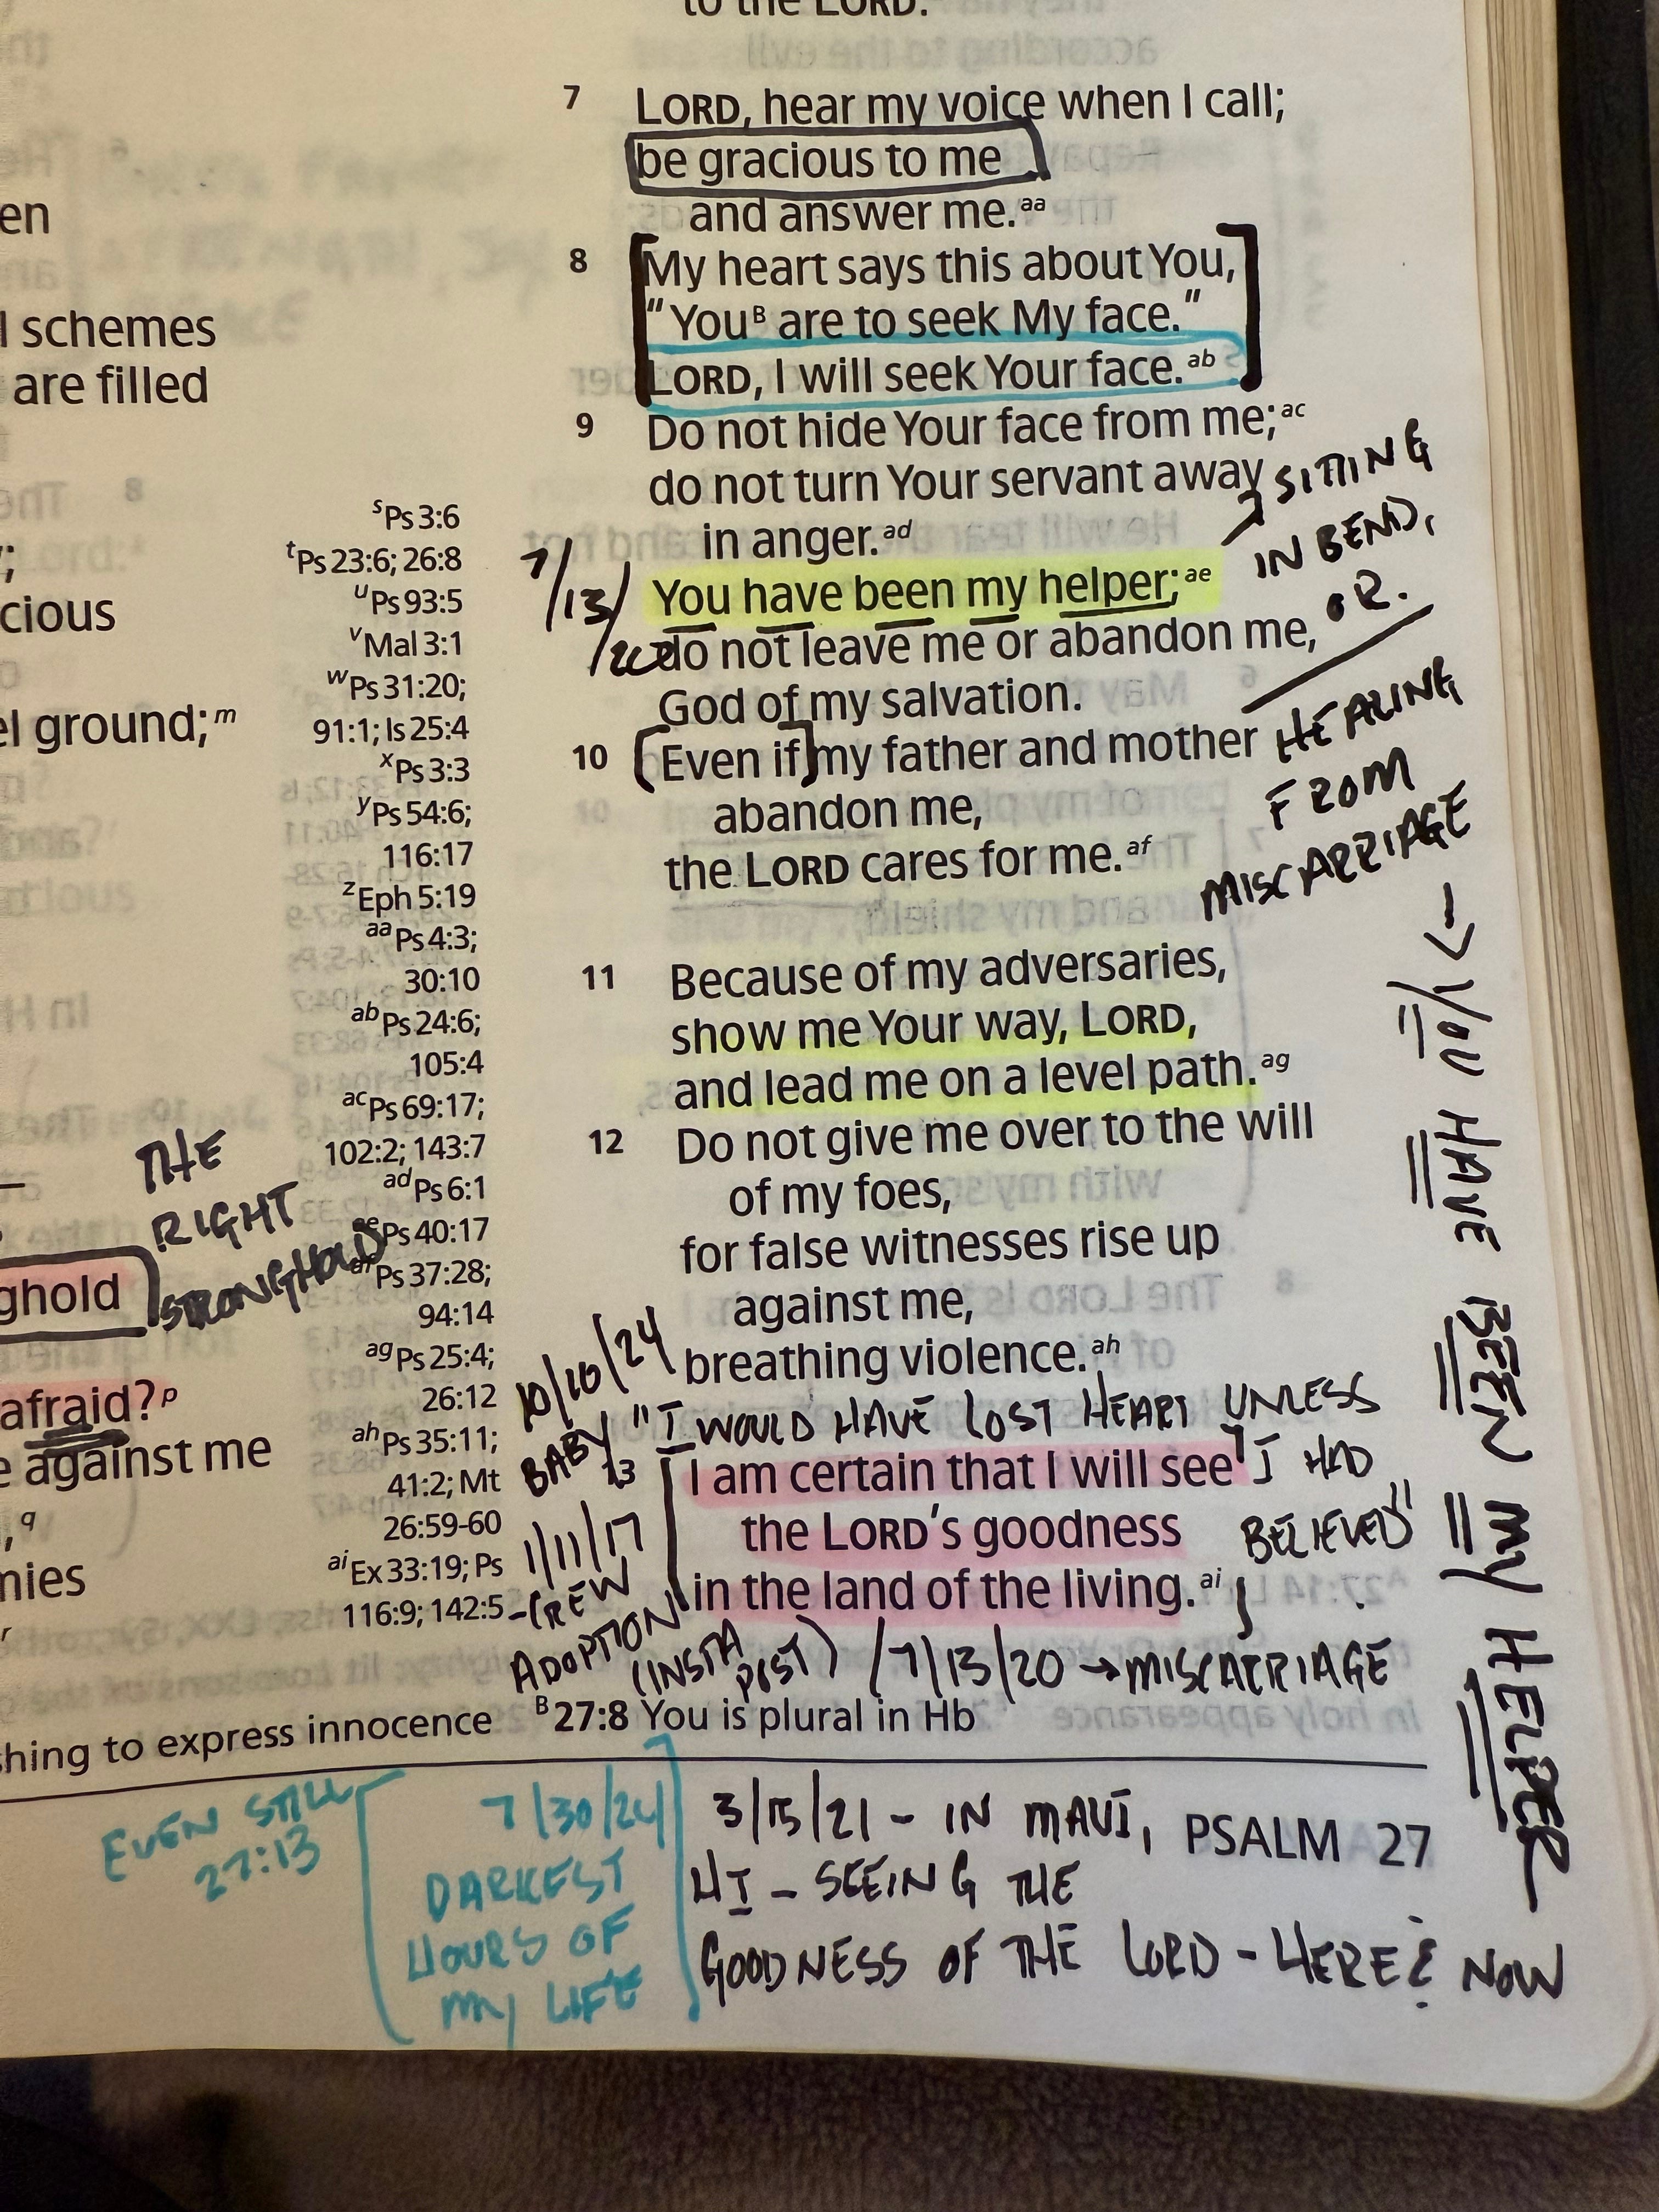 to the LORD.
7 LORD, hear my voice when I call;
be gracious to me
and answer me.aa
8 My heart says this about You,
“YouB are to seek My face.”
LORD, I will seek Your face.ab
9 Do not hide Your face from me;ac
do not turn Your servant away
in anger.ad
You have been my helper;ae
do not leave me or abandon me,
God of my salvation.
10 Even if my father and mother
abandon me,
the LORD cares for me.af
11 Because of my adversaries,
show me Your way, LORD,
and lead me on a level path.ag
12 Do not give me over to the will
of my foes,
for false witnesses rise up
against me,
breathing violence.ah
"I WOULD HAVE LOST HEART UNLESS
13 I am certain that I will see
I HAD
the LORD’s goodness
BELIEVED"
in the land of the living.ai
7/13/20 → MISCARRIAGE
B27:8 You is plural in Hb
7/13/20
SITTING
IN BEND,
OR.
HEALING
FROM
MISCARRIAGE
→ YOU HAVE BEEN MY HELPER
10/10/24
BABY
1/11/17
-CREW
ADOPTION
(INSTA
POST)
en
l schemes
are filled
;
cious
el ground;m
ghold
THE
RIGHT
STRONGHOLD
afraid?p
e against me
,q
mies
r
hing to express innocence
sPs 3:6
tPs 23:6; 26:8
uPs 93:5
vMal 3:1
wPs 31:20;
91:1; Is 25:4
xPs 3:3
yPs 54:6;
116:17
zEph 5:19
aaPs 4:3;
30:10
abPs 24:6;
105:4
acPs 69:17;
102:2; 143:7
adPs 6:1
aePs 40:17
afPs 37:28;
94:14
agPs 25:4;
26:12
ahPs 35:11;
41:2; Mt
26:59-60
aiEx 33:19; Ps
116:9; 142:5
EVEN STILL
27:13
7/30/24
DARKEST
HOURS OF
MY LIFE
3/15/21 - IN MAUI,
HI - SEEING THE
GOODNESS OF THE LORD - HERE & NOW
PSALM 27